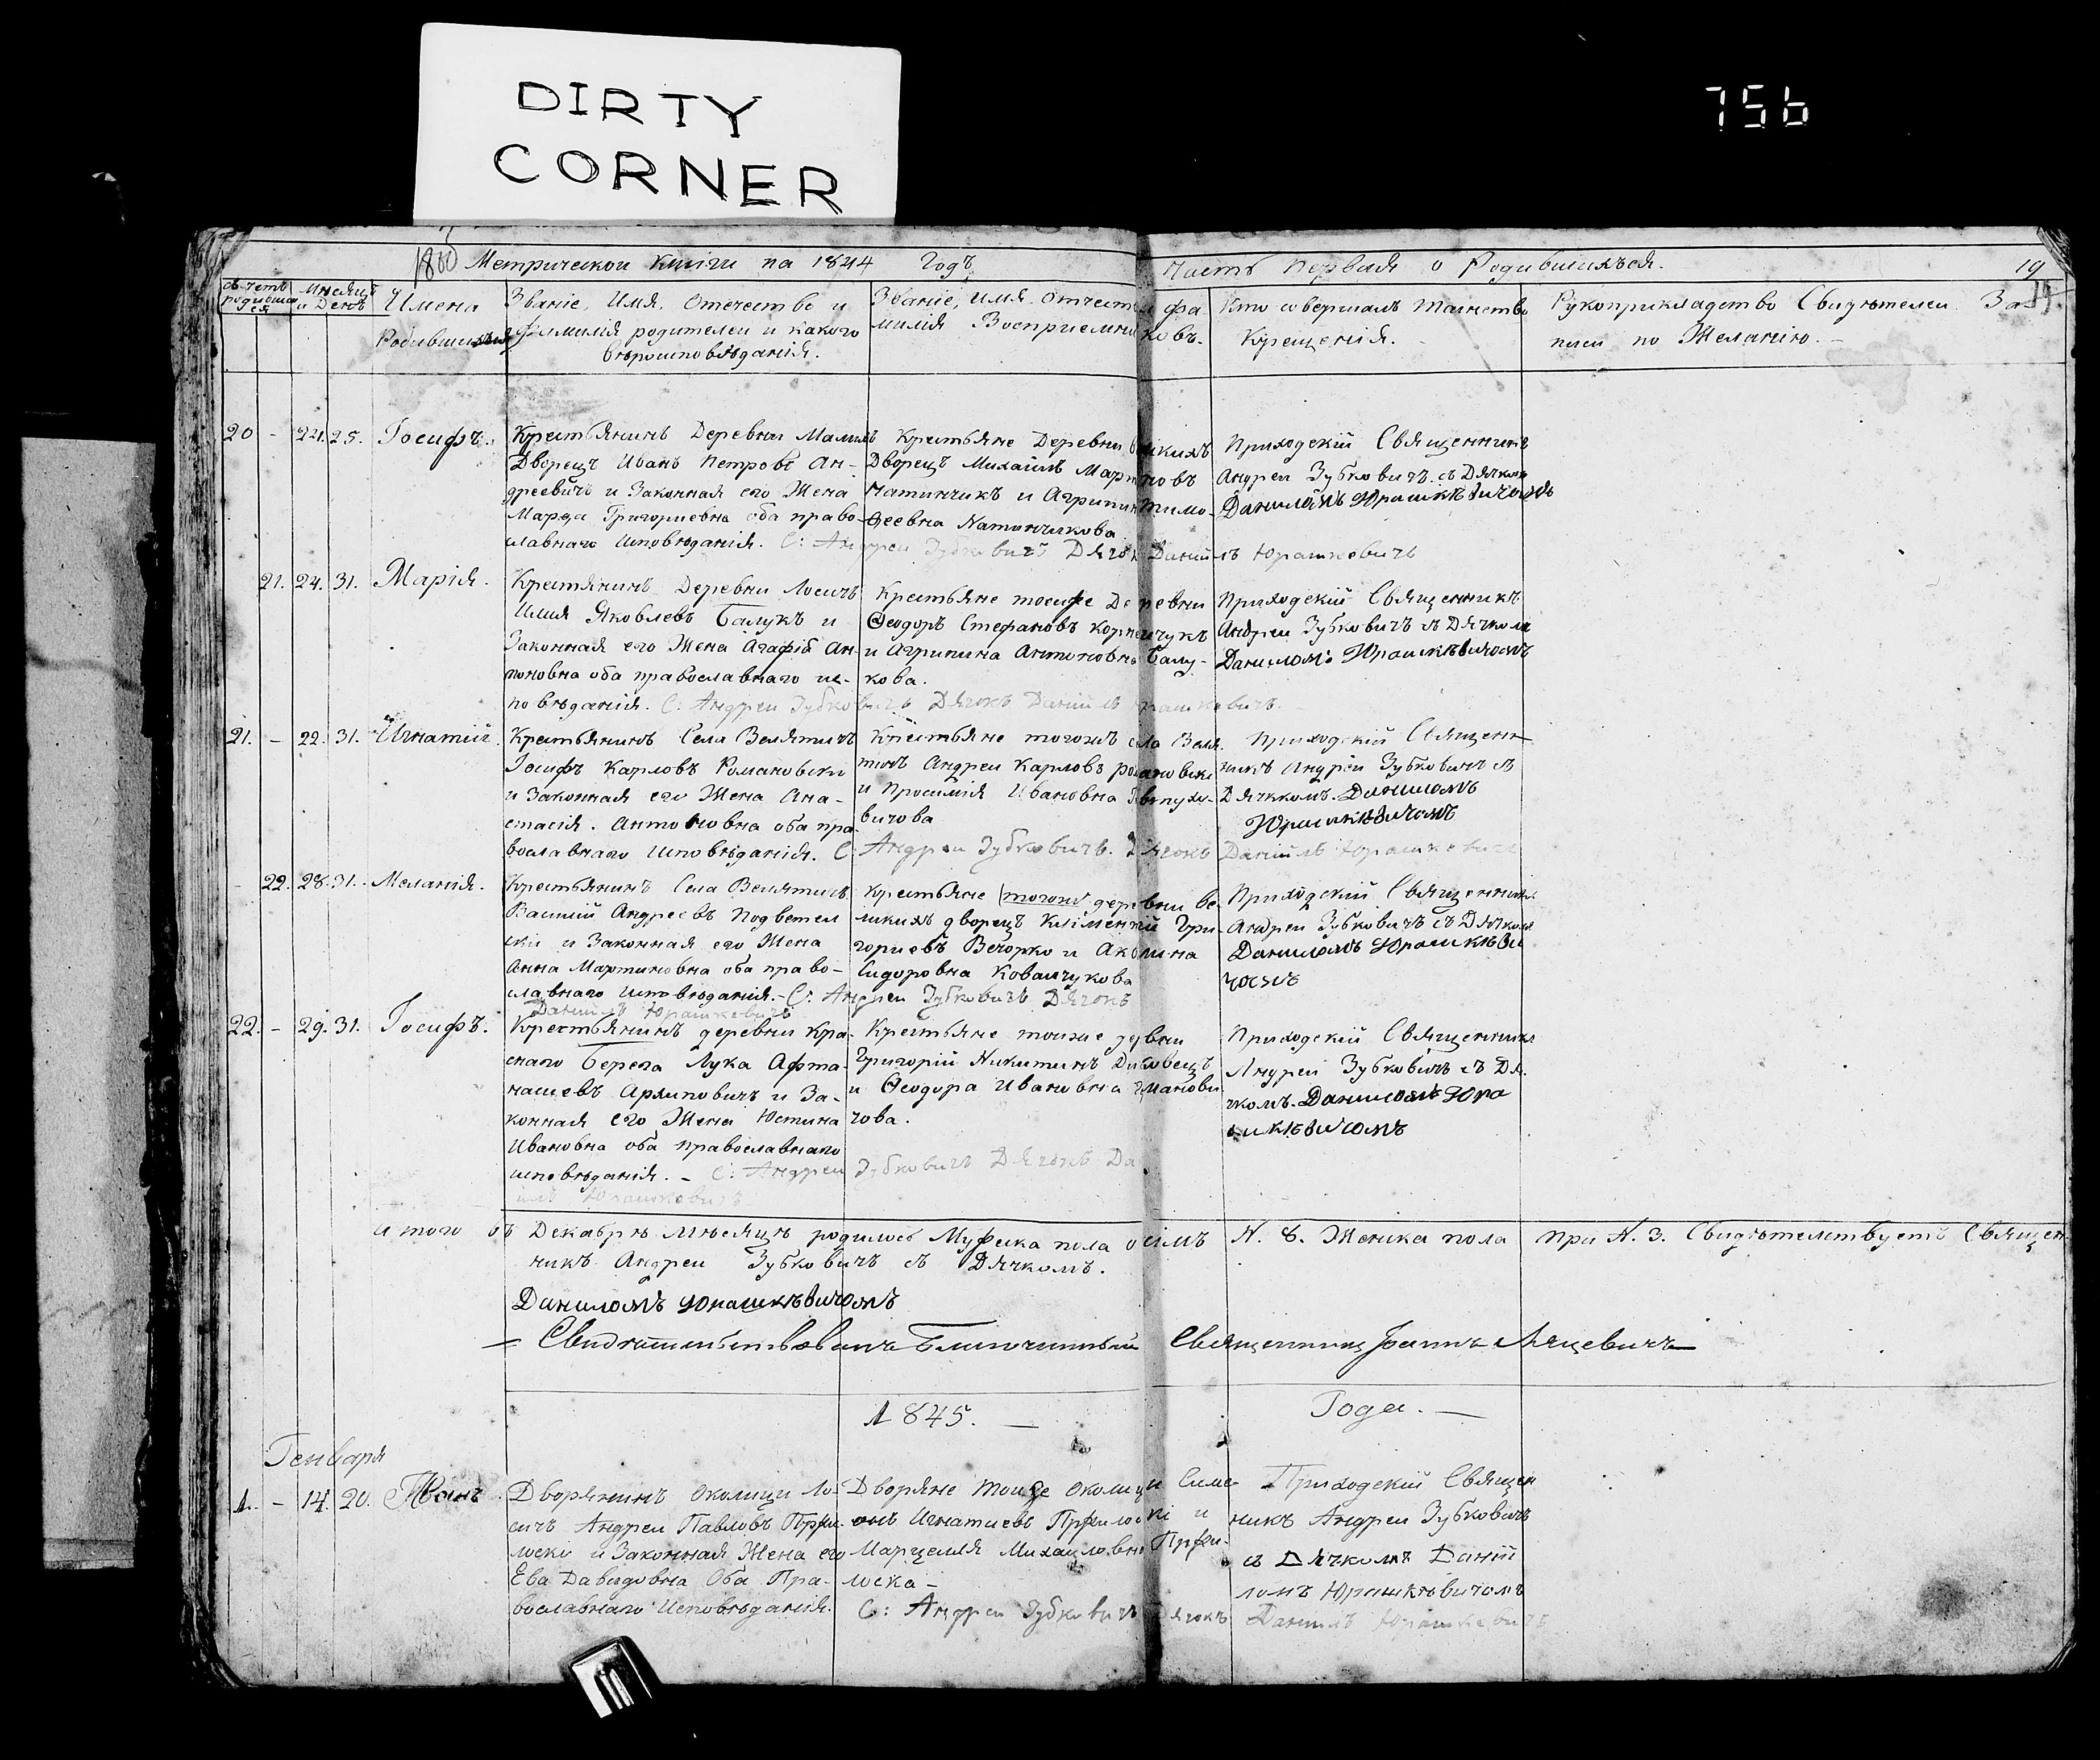 DIRTY
CORNER
756
Метрической Книги на 1844 Годъ
Часть первая о Родившихся.
19
Счетъ родившихся
Мѣсяцъ и День
Имена Родившихся
Званіе, Имя, Отчество и
фамилія родителей и какого
вѣроисповѣданія.
Званіе, имя, отчество и фа-
милія Восприемниковъ.
Кто совершалъ таинство
Крещенія.
Рукоприкладство Свидѣтелей За
писи по Желанію.
20 - 24. 25. Іосифъ.
Крестьянинъ Деревни Малыхъ
Дворецъ Иванъ Петровъ Ан-
дреевичъ и Законная его Жена
Марѳа Григориевна оба право-
славнаго исповѣданія. С: Андрей Зубковичъ Дячокъ Даніилъ Юрашкевичъ
Крестьяне Деревни Великихъ
Дворецъ Михаилъ Мартиновъ
и Агрипина Тимо-
ѳеевна
Приходскій Священникъ
Андрей Зубковичъ съ Дячкомъ
Даниломъ Юрашкѣвичомъ
21. 24. 31. Марія.
Крестянинъ Деревни Лосичъ
Илия Яковлевъ Балукъ и
Законная его Жена Агафія Ан-
тоновна оба православнаго ис-
повѣданія. С: Андрей Зубковичъ Дячокъ Даніилъ Юрашкевичъ.
Крестьяне тоейже Деревни
Ѳеодоръ Стефановъ Корнейчукъ
и Агрипина Антоновна Балу-
кова.
Приходскій Священникъ
Андрей Зубковичъ съ Дячкомъ
Даниломъ Юрашкѣвичомъ
21. - 22. 31. Игнатій.
Крестьянинъ Села Велятичъ
Іосифъ Карловъ Романовски
и Законная его Жена Ана-
стасія. Антоновна оба пра-
вославнаго исповѣданія. С: Андрей Зубковичъ. Дячокъ Даніилъ Юрашкевичъ
Крестьяне тогожъ села Веля-
тичъ Андрей Карловъ Романовски
и Ивановна
вичова
Приходскій Священ-
никъ Андрей Зубковичъ съ
Дячкомъ. Даниломъ
Юрашкѣвичомъ
22. 28. 31. Меланія.
Крестьянинъ Села Велятичъ
Василій Андреевъ Подветел
ски и Законная его Жена
Анна Мартиновна оба право-
славнаго исповѣданія. - С: Андрей Зубковичъ Дячокъ
Даніилъ Юрашкевичъ
Крестьяне тогожъ деревни Ве-
ликихъ дворецъ Климентій Гри-
гориевъ Вечорко и Акилина
Сидоровна Ковальчукова
Приходскій Священникъ
Андрей Зубковичъ съ Дячкомъ
Даниломъ Юрашкѣви
чомъ
22. - 29. 31. Іосифъ.
Крестьянинъ деревни Кра-
снаго Берега Лука Афта-
нашевъ Арлиповичъ и За-
конная его Жена Юстина
Ивановна оба православнаго
исповѣданія. - С: Андрей Зубковичъ Дячокъ Да
ніилъ Юрашкевичъ
Крестьяне тоиже деревни
Григорій Никитинъ
и Ѳеодора Ивановна
чова.
Приходскій Священникъ
Андрей Зубковичъ съ Дя-
чкомъ. Даниломъ Юра
шкѣвичомъ
итого въ Декабрѣ Мѣсяцѣ родилось Мужеска пола осімъ N. 8. Женска пола три N. 3. Свидѣтельствуетъ Священ
никъ Андрей Зубковичъ съ Дячкомъ.
Даниломъ Юрашкѣвичомъ
Свидѣтельствовалъ Благочинный Священникъ Іоаннъ Ляцевичъ
1845. Года.
Генваря
1. - 14. 20. Иванъ
Дворянинъ Околицы Ло-
сичъ Андрей Павловъ
лоски и Законная Жена его
Ева Давидовна Оба Пра-
вославнаго Исповѣданія.
Дворяне Тоиже Околицы Симе
онъ Игнатиевъ и
Марцелля Михайловна
лоска -
С: Андрей Зубковичъ Дячокъ Даніилъ Юрашкевичъ
Приходскій Священ
никъ Андрей Зубковичъ
съ Дячкомъ Даніи
ломъ Юрашкѣвичомъ